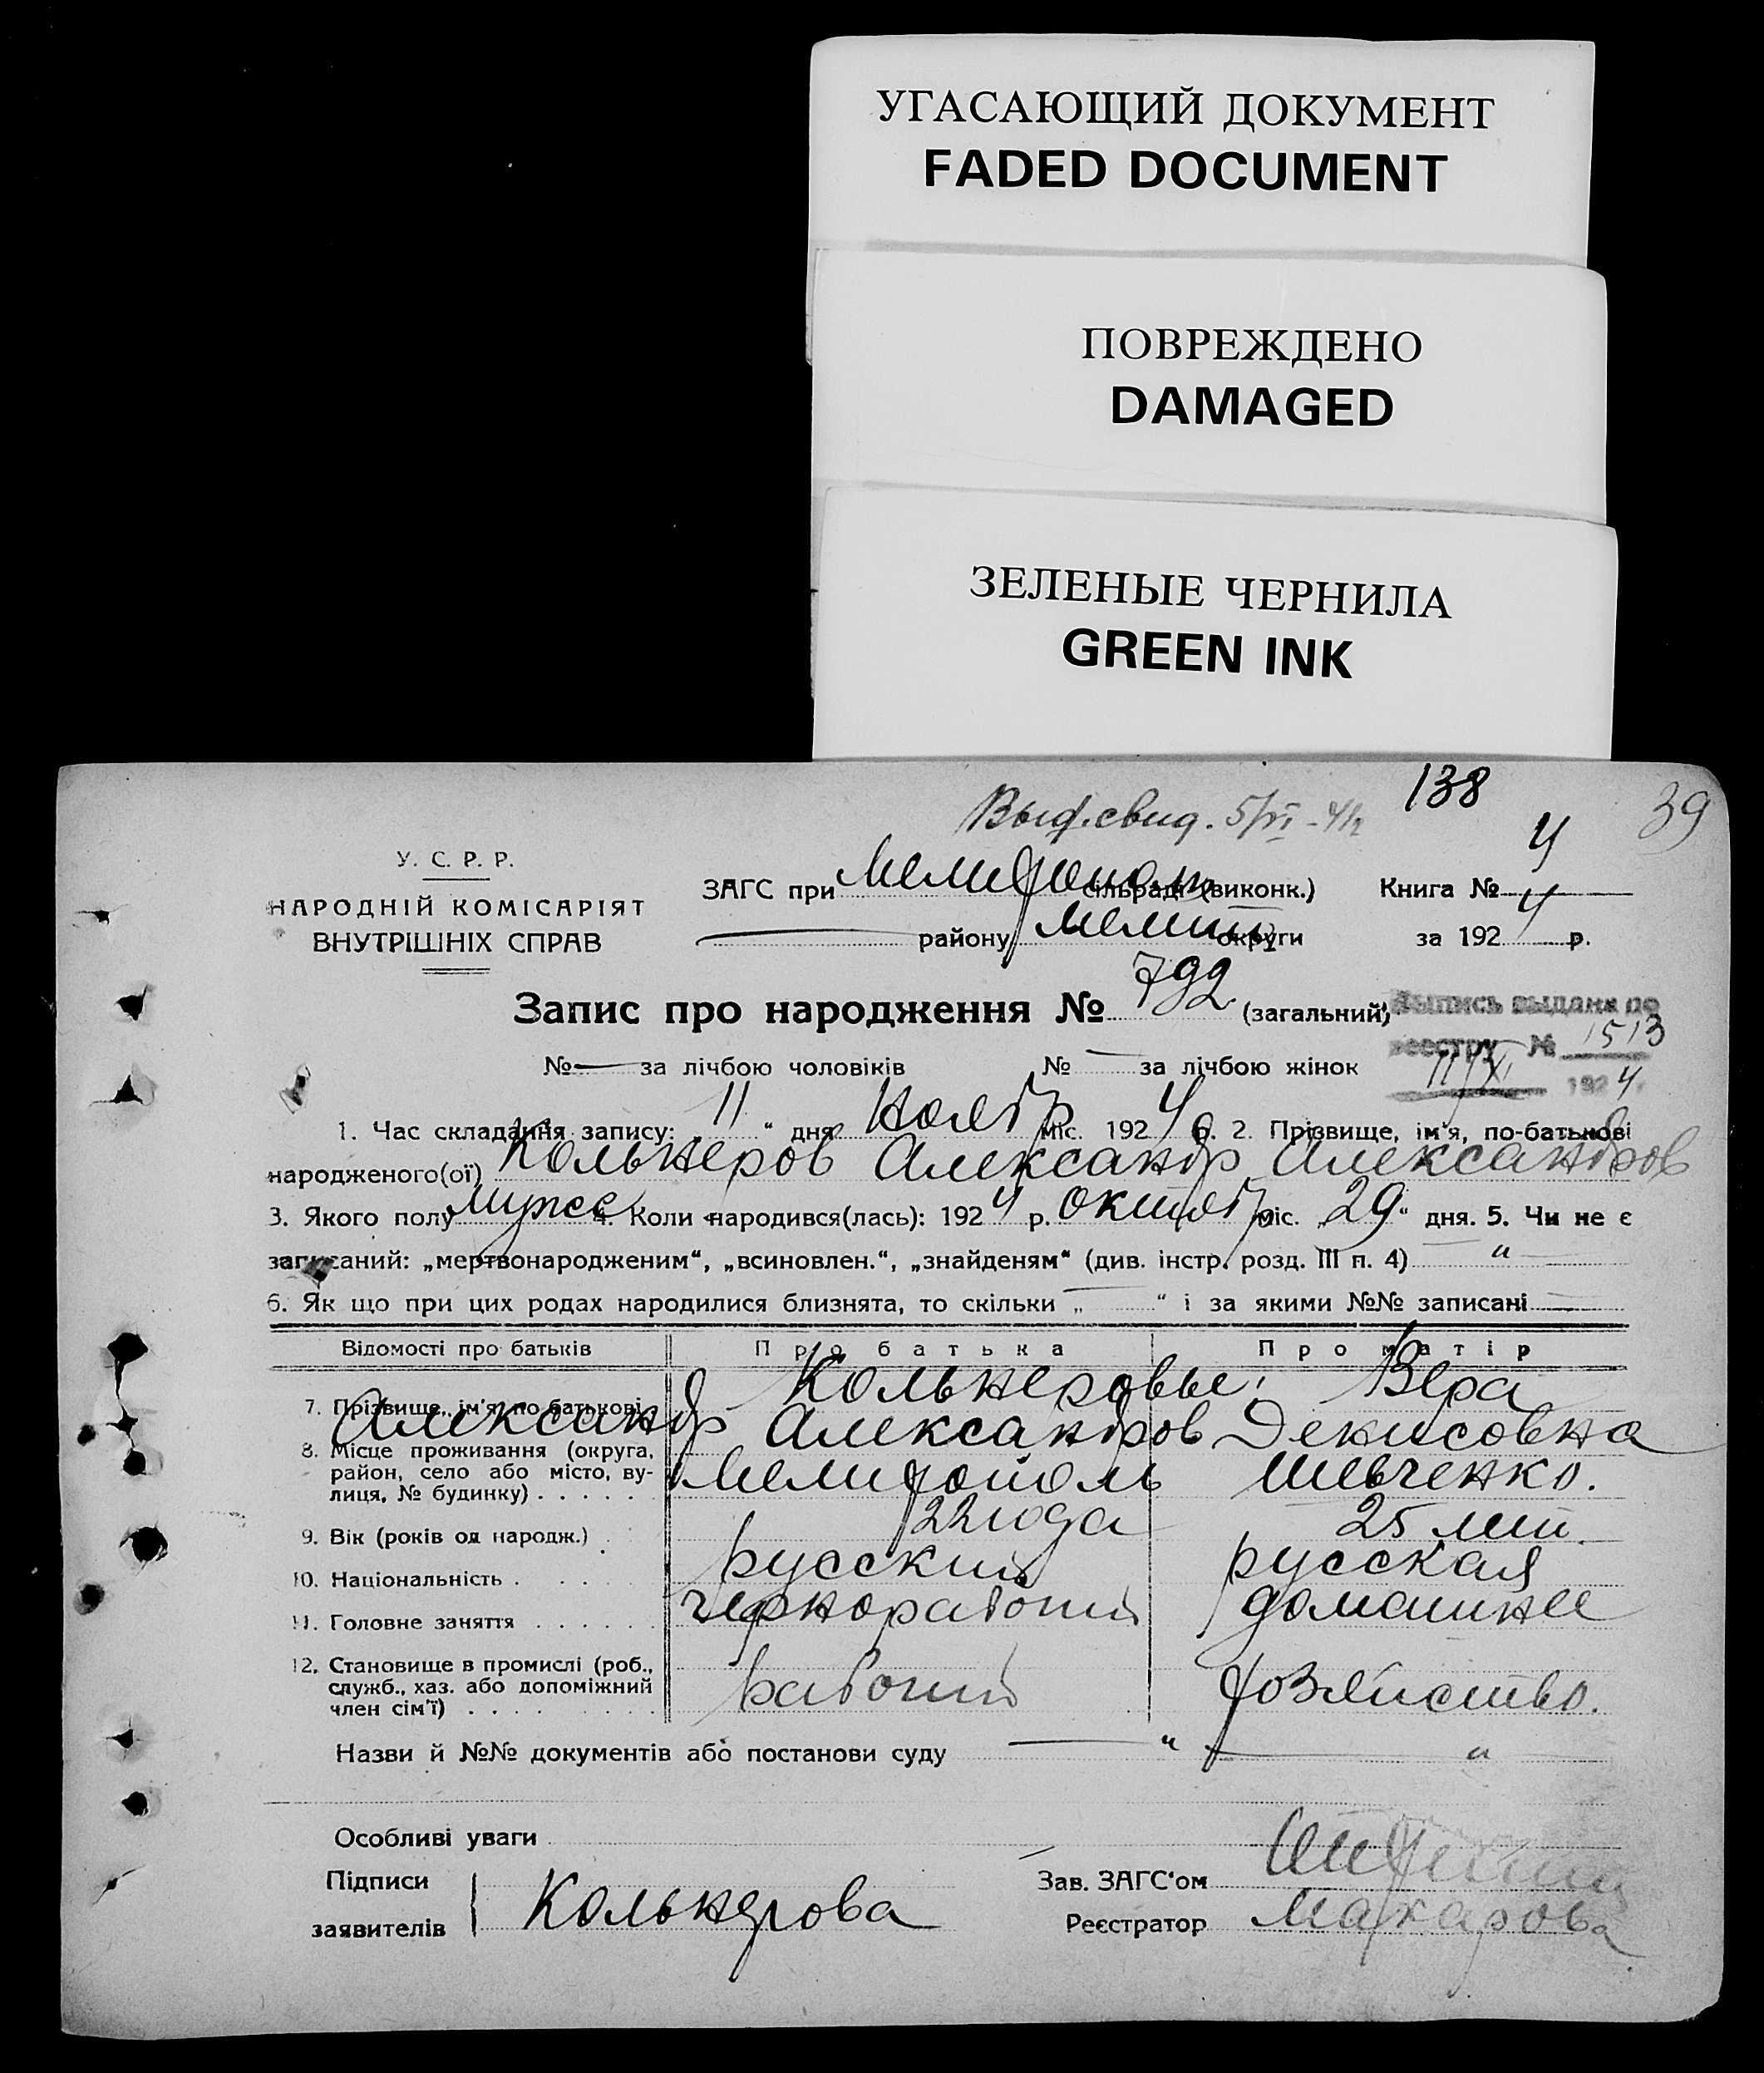 УГАСАЮЩИЙ ДОКУМЕНТ
FADED DOCUMENT
ПОВРЕЖДЕНО
DAMAGED
ЗЕЛЕНЫЕ ЧЕРНИЛА
GREEN INK
138
39
Выд. свид. 5/VI - 41
У. С. Р. Р.
НАРОДНІЙ КОМІСАРІЯТ
ВНУТРІШНІХ СПРАВ
ЗАГС при Мелитополь сільраді (виконк.) Книга № 4
району Мелит округи за 1924 р.
Запис про народження № 792 (загальний)
Выпись выдана по
реестру № 1513
11/XI 1924
№ — за лічбою чоловіків № — за лічбою жінок
1. Час складання запису: 11 " дня Ноябр міс. 1924 р. 2. Прізвище, ім'я, по-батькові
народженого(ої) Кольнеров Александр Александров
3. Якого полу мужс 4. Коли народився(лась): 1924 р. октябр міс. „29" дня. 5. Чи не є
записаний: „мертвонародженим", „всиновлен.", „знайденям" (див. інстр. розд. III п. 4) — " —
6. Як що при цих родах народилися близнята, то скільки „ — " і за якими №№ записані —
Відомості про батьків Про батька Про матір
7. Прізвище, ім'я, по батькові Кольнеровы: Вера
Александр Александров Денисовна
8. Місце проживання (округа, район, село або місто, вулиця, № будинку) . . . . . Мелитополь Шевченко.
9. Вік (років од народж.) . 22 года 25 лет.
10. Національність . . . . . русский русская
11. Головне заняття . . . . . . чернорабочий домашнее
12. Становище в промислі (роб., служб., хаз. або допоміжний член сім'ї) . . . . . . . . рабочий хозяйство.
Назви й №№ документів або постанови суду — " — " —
Особливі уваги
Підписи
заявителів Кольнерова
Зав. ЗАГС'ом
Реєстратор Макарова